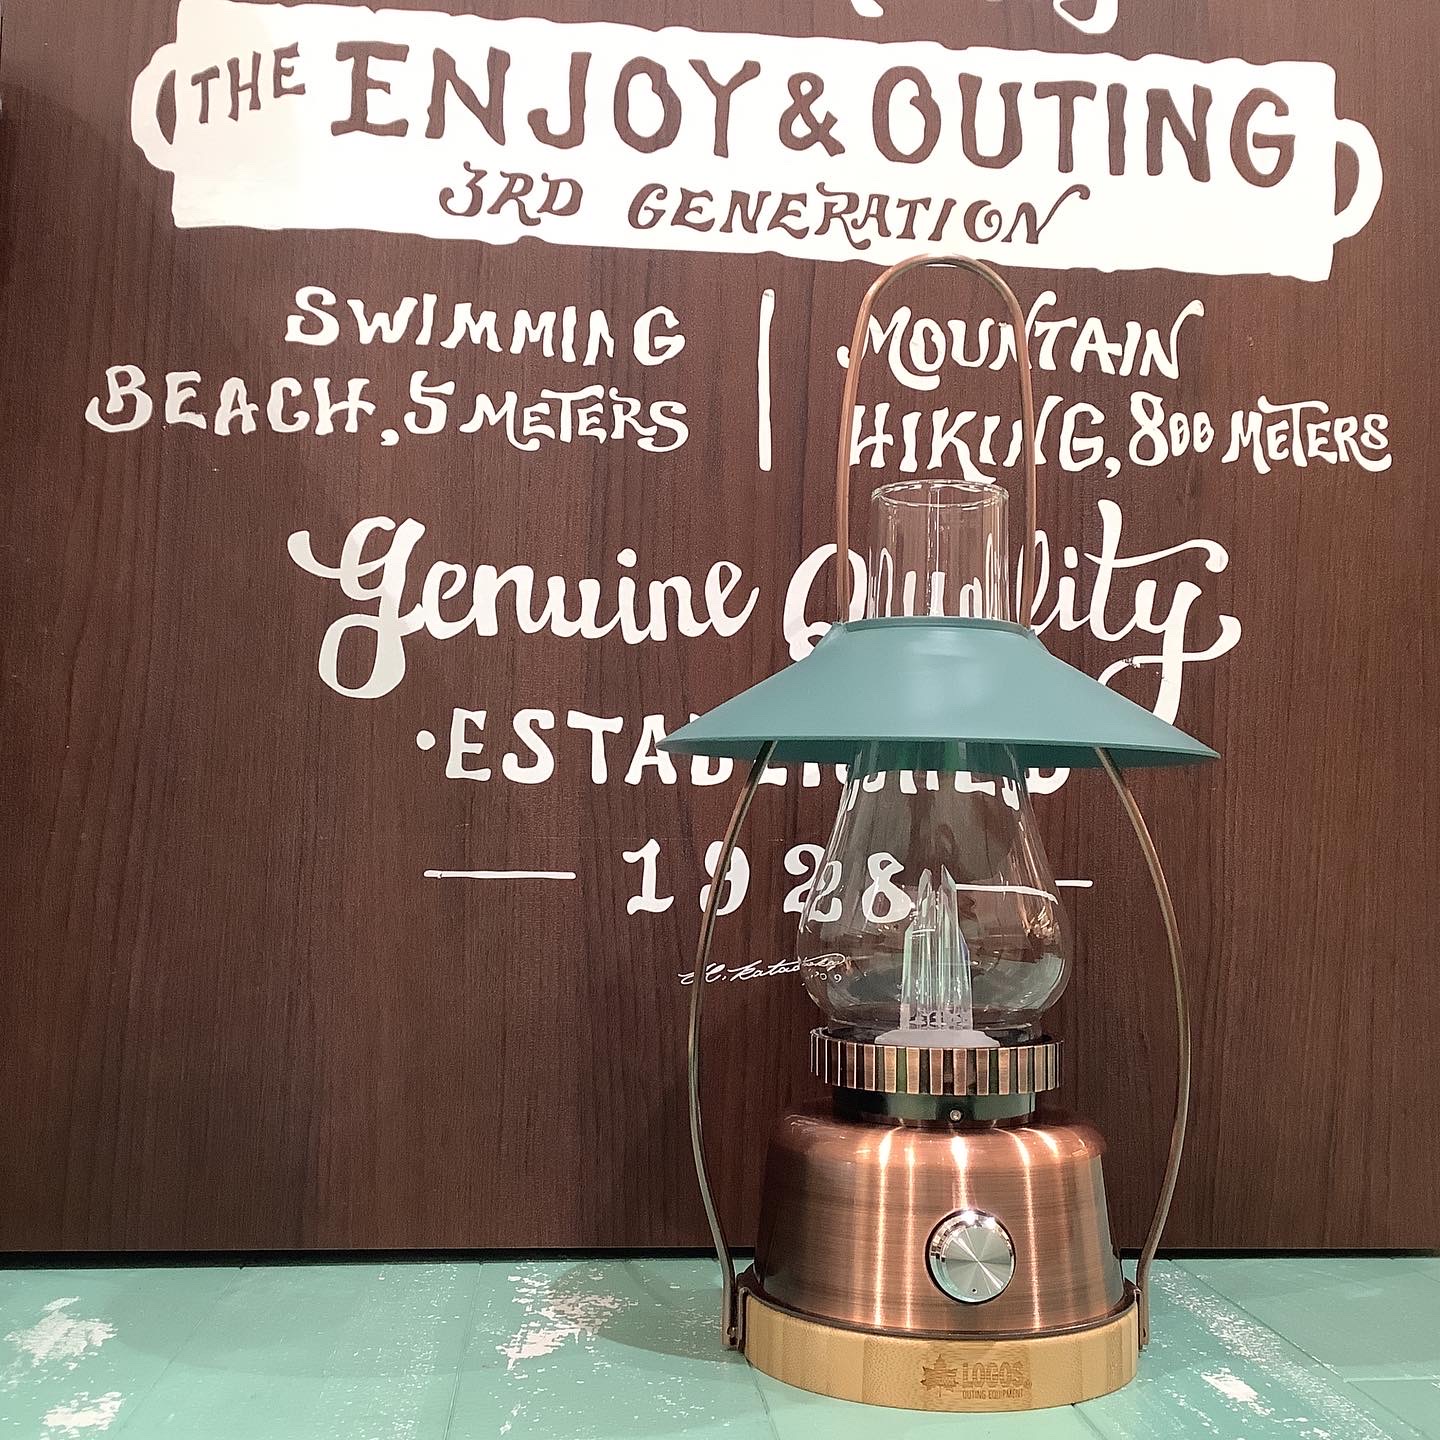 THE ENJOY & OUTING
3RD GENERATION
SWIMMING
BEACH, 5 METERS
MOUNTAIN
HIKING, 800 METERS
Genuine Quality
·ESTABLISHED
1928
LOGOS
OUTING EQUIPMENT